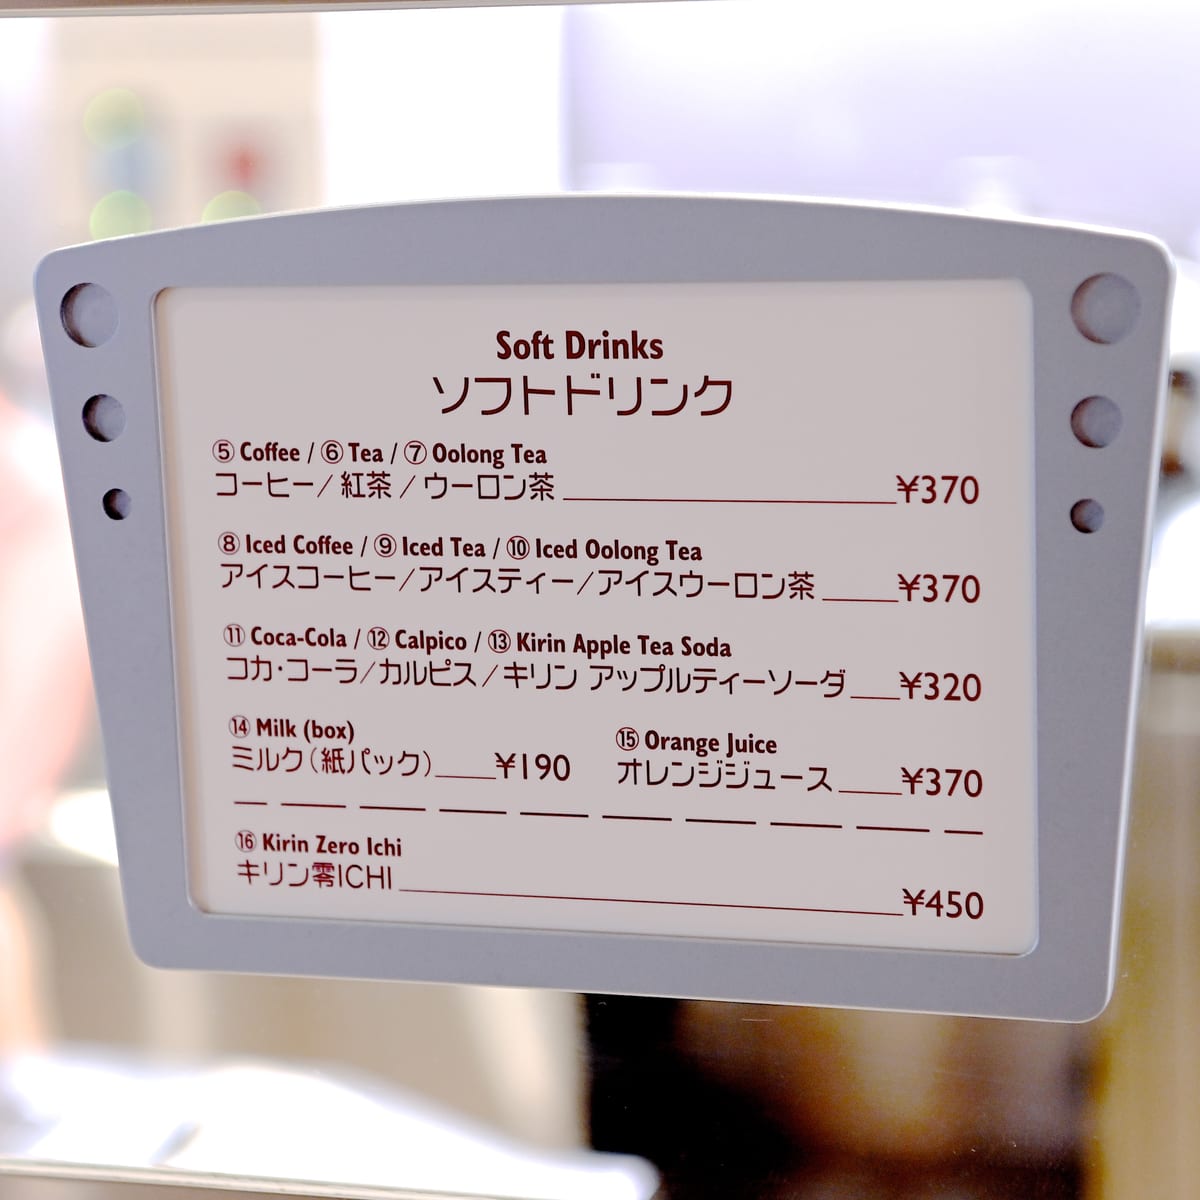 Soft Drinks
ソフトドリンク
⑤ Coffee / ⑥ Tea / ⑦ Oolong Tea
コーヒー/紅茶/ウーロン茶 ¥370
⑧ Iced Coffee / ⑨ Iced Tea / ⑩ Iced Oolong Tea
アイスコーヒー/アイスティー/アイスウーロン茶 ¥370
⑪ Coca-Cola / ⑫ Calpico / ⑬ Kirin Apple Tea Soda
コカ・コーラ/カルピス/キリン アップルティーソーダ ¥320
⑭ Milk (box)
ミルク(紙パック) ¥190
⑮ Orange Juice
オレンジジュース ¥370
⑯ Kirin Zero Ichi
キリン零ICHI ¥450